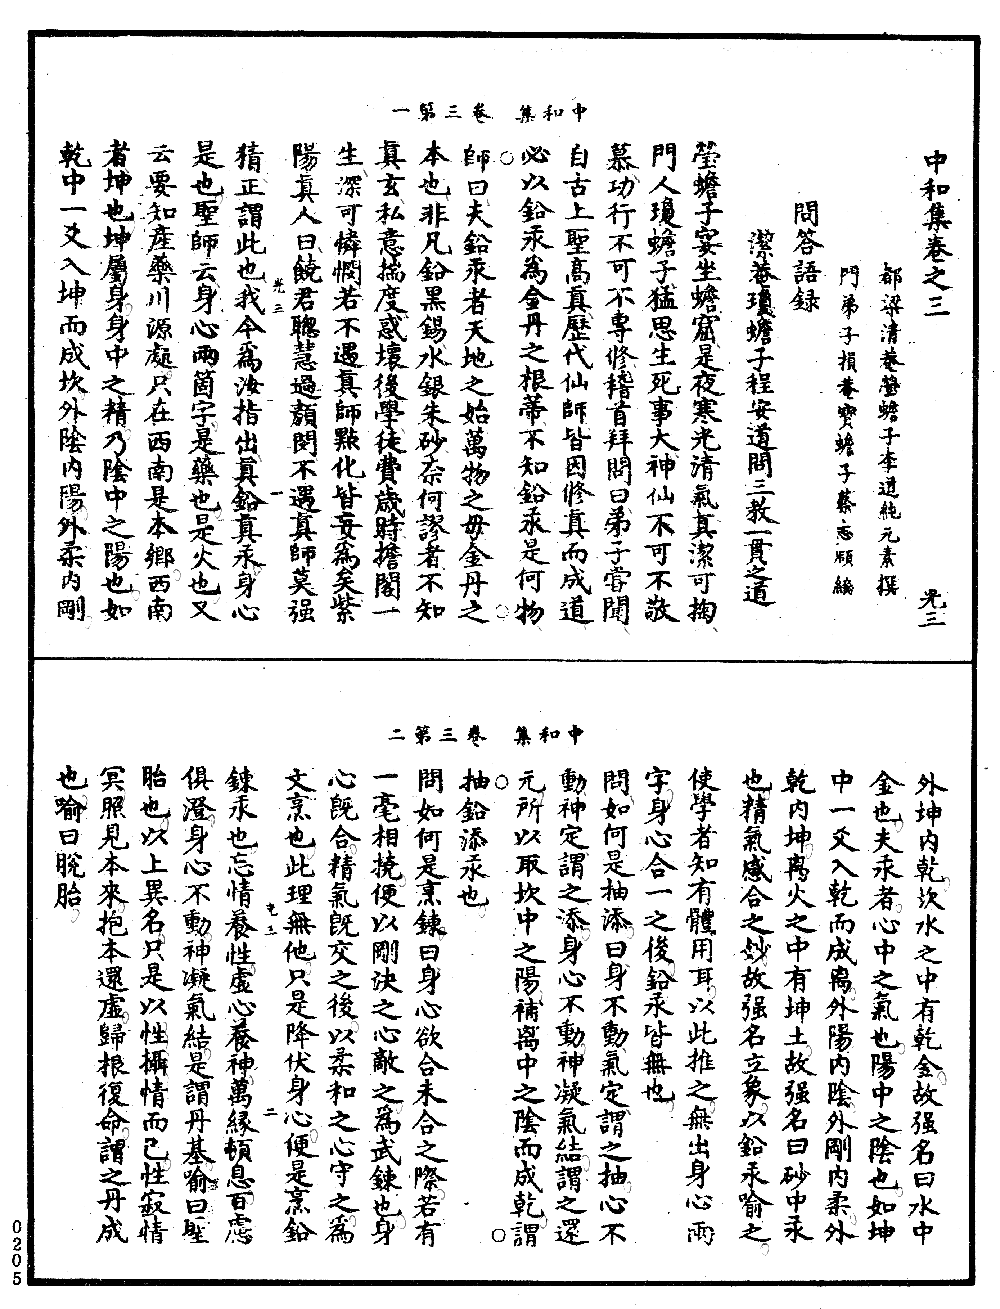 中和集　卷三第一
中和集卷之三　光三
都梁清菴瑩蟾子李道純元素撰
門弟子損菴寶蟾子蔡志頤編
問答語錄
潔菴瓊蟾子程安道問三教一貫之道
瑩蟾子宴坐蟾窟是夜寒光清氣真潔可掬
門人瓊蟾子猛思生死事大神仙不可不敬
慕功行不可不專修稽首拜問曰弟子嘗聞
自古上聖高真歷代仙師皆因修真而成道
必以鉛汞為金丹之根蒂不知鉛汞是何物
師曰夫鉛汞者天地之始萬物之母金丹之
本也非凡鉛黑錫水銀朱砂柰何謬者不知
真玄私意揣度惑壞後學徒費歲時擔閣一
生深可憐憫若不遇真師點化皆妄為矣紫
陽真人曰饒君聰慧過顏閔不遇真師莫强
光三　一
猜正謂此也我今為汝指出真鉛真汞身心
是也聖師云身心兩箇字是藥也是火也又
云要知產藥川源處只在西南是本鄉西南
者坤也坤屬身身中之精乃陰中之陽也如
乾中一爻入坤而成坎外陰內陽外柔內剛
中和集　卷三第二
外坤內乾坎水之中有乾金故强名曰水中
金也夫汞者心中之氣也陽中之陰也如坤
中一爻入乾而成离外陽內陰外剛內柔外
乾內坤离火之中有坤土故强名曰砂中汞
也精氣感合之妙故强名立象以鉛汞喻之
使學者知有體用耳以此推之無出身心兩
字身心合一之後鉛汞皆無也
問如何是抽添曰身不動氣定謂之抽心不
動神定謂之添身心不動神凝氣結謂之還
元所以取坎中之陽補离中之陰而成乾謂
抽鉛添汞也
問如何是烹鍊曰身心欲合未合之際若有
一毫相撓便以剛決之心敵之為武鍊也身
心既合精氣既交之後以柔和之心守之為
文烹也此理無他只是降伏身心便是烹鉛
光三　二
鍊汞也忘情養性虛心養神萬緣頓息百慮
俱澄身心不動神凝氣結是謂丹基喻曰聖
胎也以上異名只是以性攝情而已性寂情
冥照見本來抱本還虛歸根復命謂之丹成
也喻曰脫胎
0205